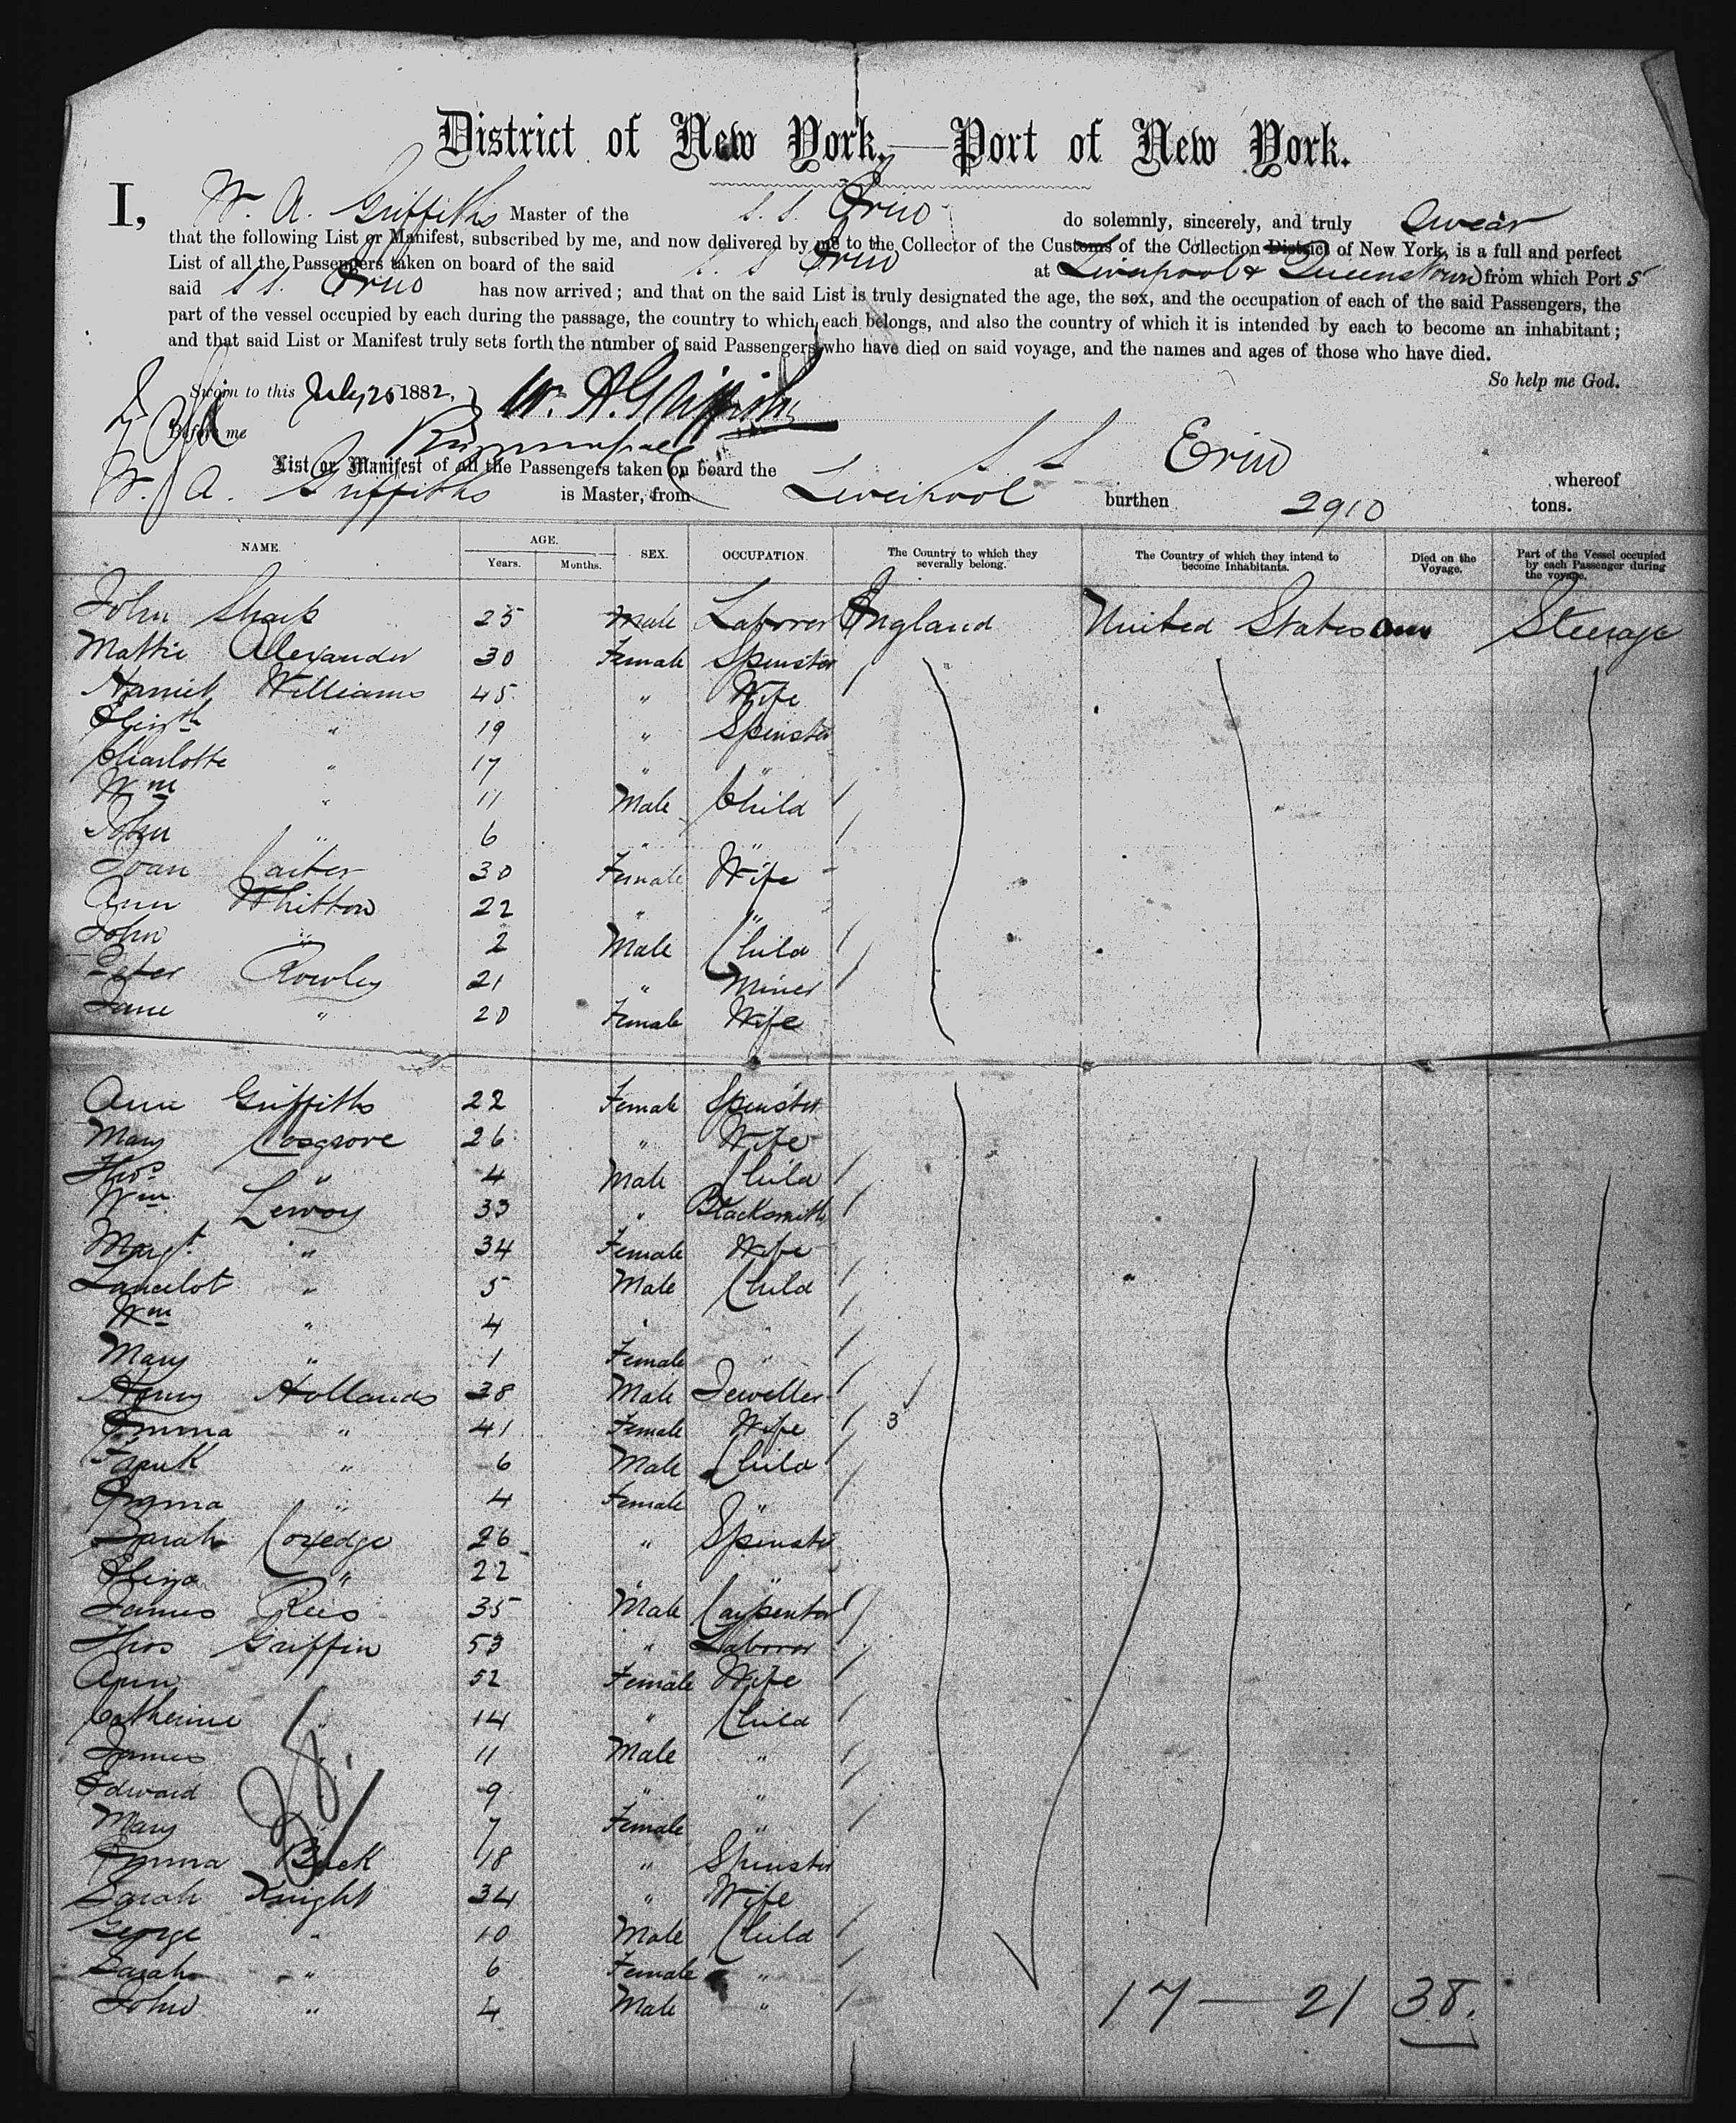 District of New York,—Port of New York.
I, W. A. Griffiths Master of the S. S. Erin do solemnly, sincerely, and truly swear
that the following List or Manifest, subscribed by me, and now delivered by me to the Collector of the Customs of the Collection District of New York, is a full and perfect
List of all the Passengers taken on board of the said S. S. Erin at Liverpool & Queenstown from which Port S
said S S. Erin has now arrived; and that on the said List is truly designated the age, the sex, and the occupation of each of the said Passengers, the
part of the vessel occupied by each during the passage, the country to which each belongs, and also the country of which it is intended by each to become an inhabitant;
and that said List or Manifest truly sets forth the number of said Passengers who have died on said voyage, and the names and ages of those who have died.
So help me God.
Sworn to this July 25 1882, W. A. Griffiths
Before me
List or Manifest of all the Passengers taken on board the S S Erin whereof
W. A. Griffiths is Master, from Liverpool burthen 2910 tons.
NAME. AGE. SEX. OCCUPATION. The Country to which they severally belong. The Country of which they intend to become Inhabitants. Died on the Voyage. Part of the Vessel occupied by each Passenger during the voyage.
Years. Months.
John Sharp 25 Male Laborer England United States Steerage
Mattie Alexander 30 Female Spinster
Harriet Williams 45 " Wife
Elizth " 19 " Spinster
Charlotte " 17 " "
Wm " 11 Male Child
John " 6 " "
Joan Carter 30 Female Wife
Ann Whitton 22 " "
John " 2 Male Child
Peter Rowley 21 " Miner
Jane " 20 Female Wife
Ann Griffiths 22 Female Spinster
Mary Cosgrove 26 " Wife
Thos " 4 Male Child
Wm Lewoy 33 " Blacksmith
Margt " 34 Female Wife
Lancelot " 5 Male Child
Wm " 4 " "
Mary " 1 Female "
Henry Hollands 38 Male Jeweller
Emma " 41 Female Wife 3
Frank " 6 Male Child
Emma " 4 Female "
Sarah Coxedge 26 " Spinster
Eliza " 22 " "
James Rees 35 Male Carpenter
Thos Griffin 53 " Laborer
Ann 52 Female Wife
Catherine " 14 " Child
James " 11 Male "
Edward 9 " "
Mary " 7 Female "
Emma Buck 18 " Spinster
Sarah Knight 34 " Wife
George " 10 Male Child
Sarah " 6 Female "
John " 4 Male "
17 — 21 38.